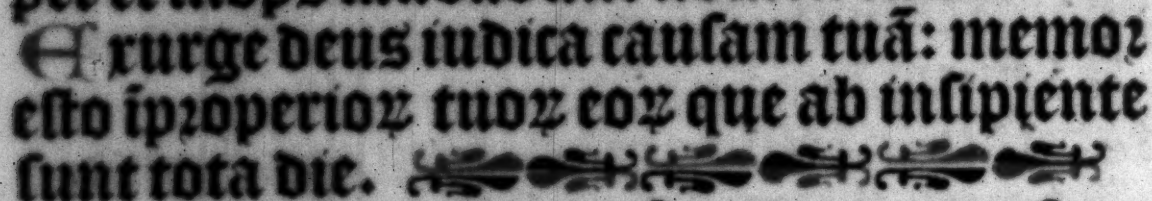 Exurge deus iudica cauſam tuã: memoꝛ
eſto ĩpꝛoperioꝝ tuoꝝ eoꝝ que ab inſipiente
ſunt tota die.